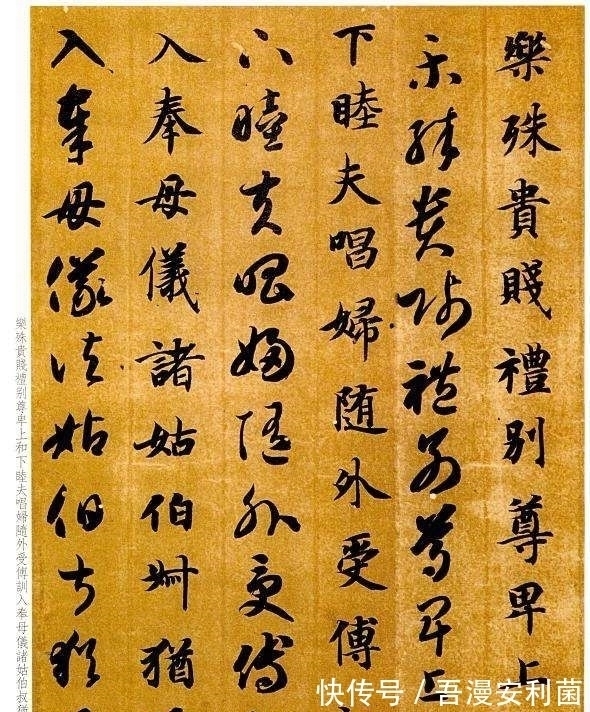 樂殊貴賤禮别尊卑上
樂殊貴賤禮别尊卑上
下睦夫唱婦随外受傅
下睦夫唱婦随外受傅
入奉母儀諸姑伯叔猶
入奉母儀諸姑伯叔猶
樂殊貴賤禮别尊卑上和下睦夫唱婦隨外受傅訓入奉母儀諸姑伯叔猶
快传号 / 吾漫安利菌